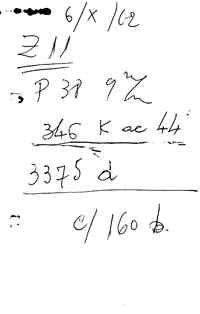 6/X/62
Z 11
P 38 9
346 K ac 44
3375 d
c/ 160 b.